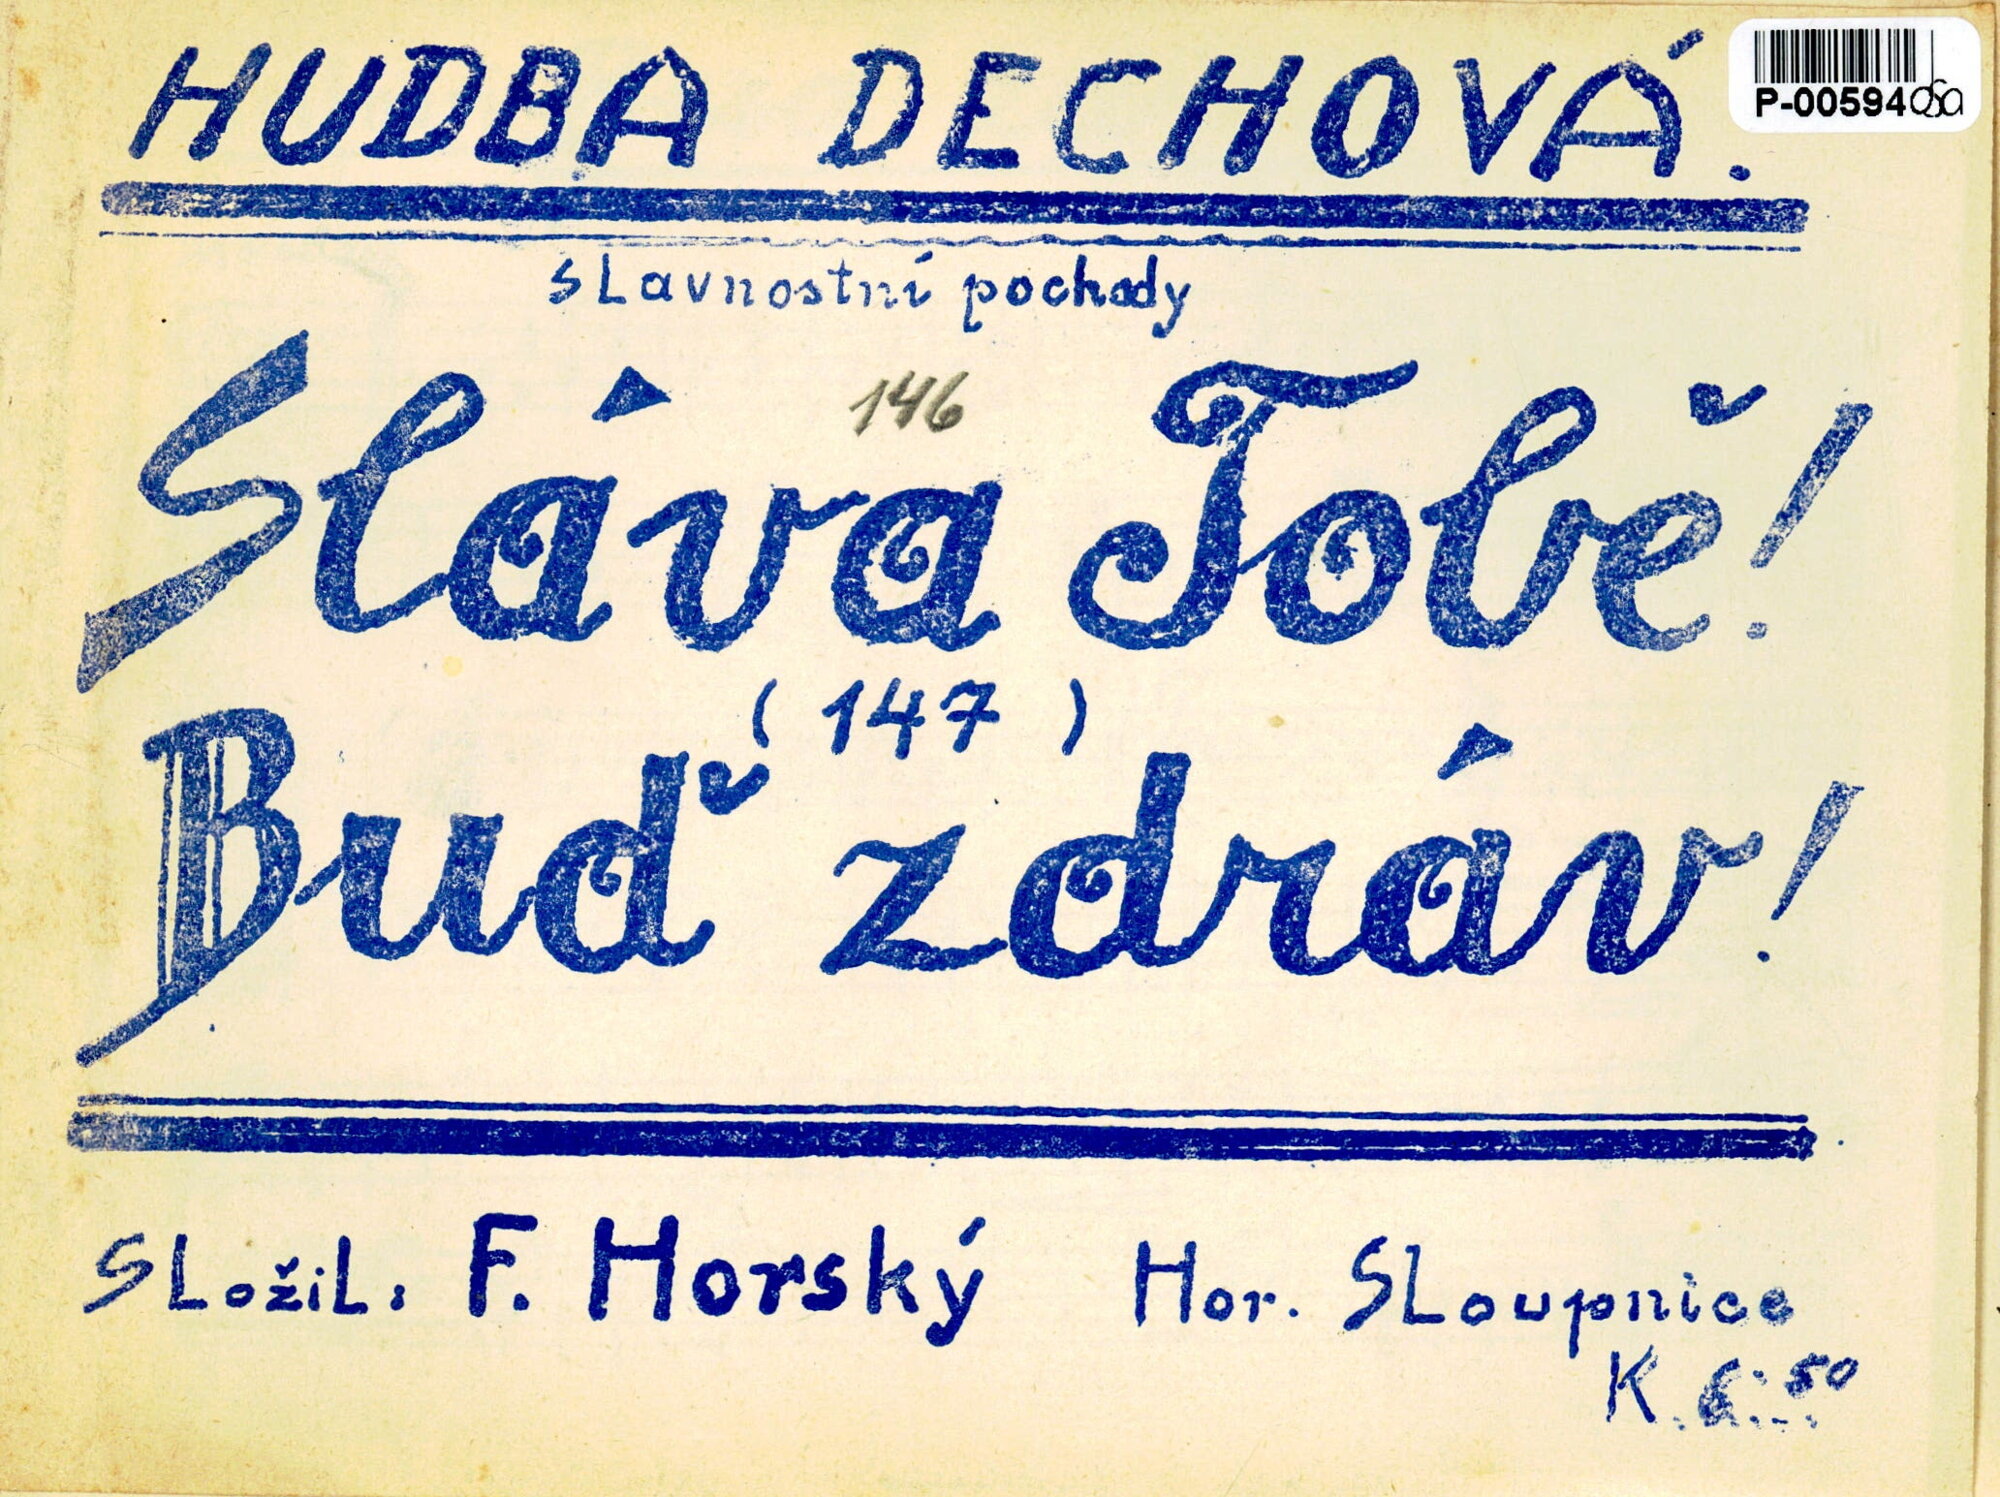 HUDBA DECHOVÁ.
P-00594
slavnostní pochody
146
Sláva Tobě!
(147)
Buď zdráv!
Složil: F. Horský Hor. Sloupnice
K. 50